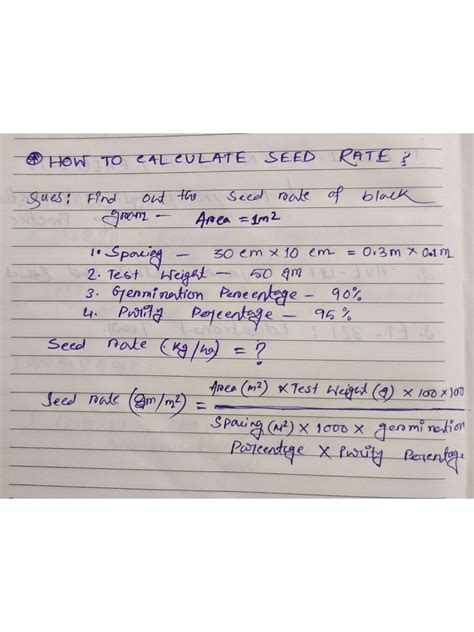 * HOW TO CALCULATE SEED RATE ?
Ques: Find out the Seed rate of black
gram – Area = 1m²
1. Spacing – 30 cm × 10 cm = 0.3m × 0.1m
2. Test Weight – 50 gm
3. Germination Percentage – 90%
4. Purity Percentage – 95%
Seed rate (kg/ha) = ?
Seed rate (gm/m²) = Area (m²) × Test Weight (g) × 100 × 100
Spacing (M²) × 1000 × germination
Percentage × Purity Percentage